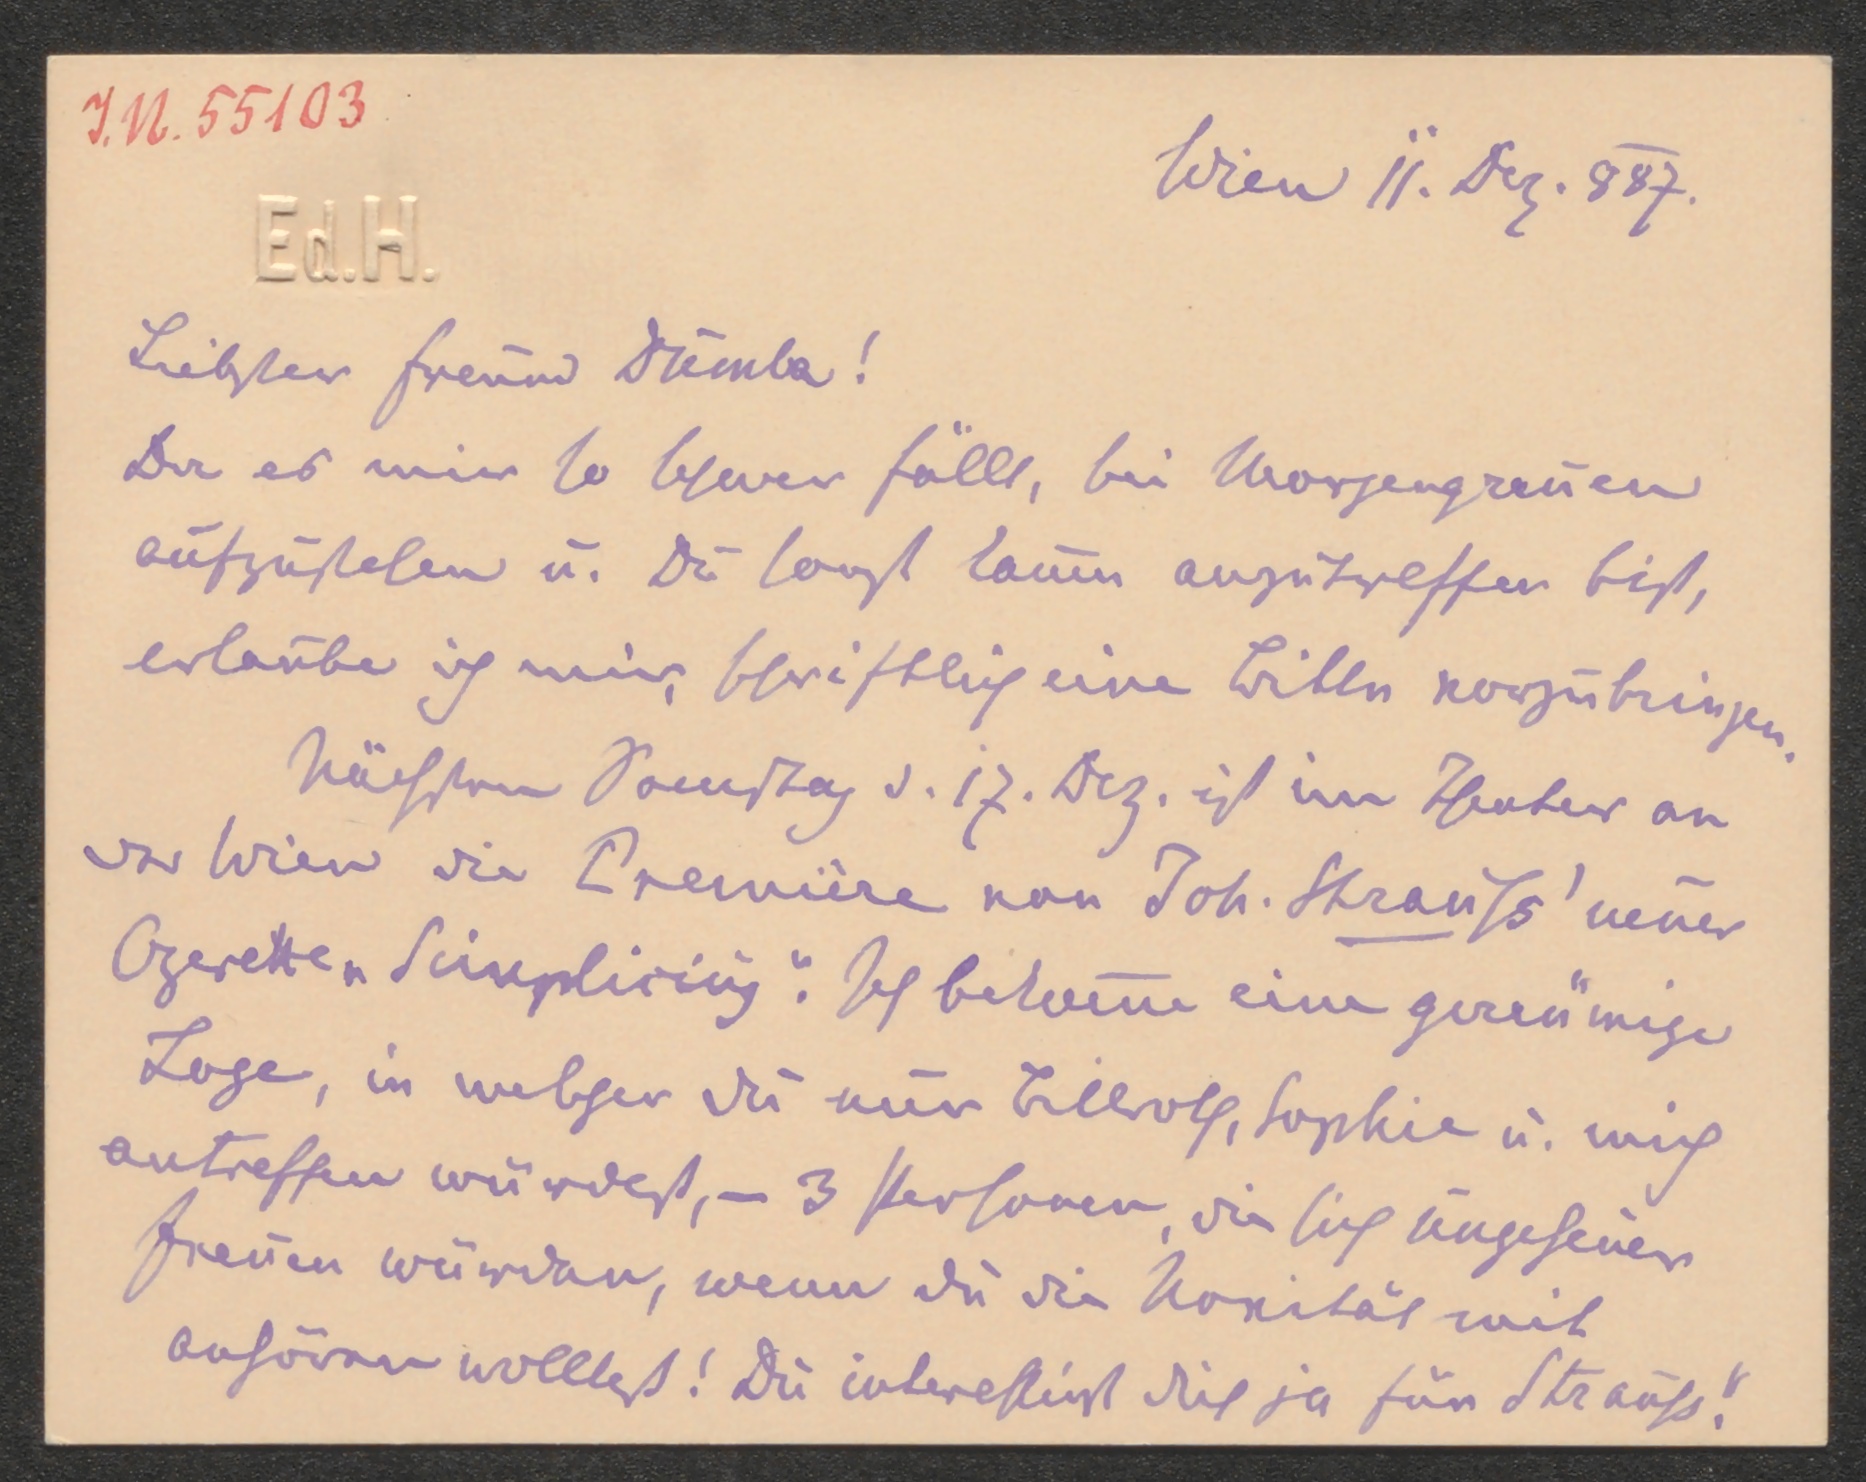 I.N. 55103
Ed.H.
Wien 11. Dez. 887.
Liebster Freund Dumba!
Da es mir so schwer fällt, bei Morgengrauen
aufzustehen u. Du sonst kaum anzutreffen bist,
erlaube ich mir, schriftlich eine Bitte vorzubringen.
Nächsten Samstag d. 17. Dez. ist im Theater an
der Wien die Première von Joh. Strauß' neuer
Operette „Simplicius“. Ich bekom̅e eine geräumige
Loge, in welcher Du nur Billroth, Sophie u. mich
antreffen würdest, – 3 Personen, die sich ungeheuer
freuen würden, wenn Du die Novität mit
anhören wolltest! Du interessirst Dich ja für Strauß!